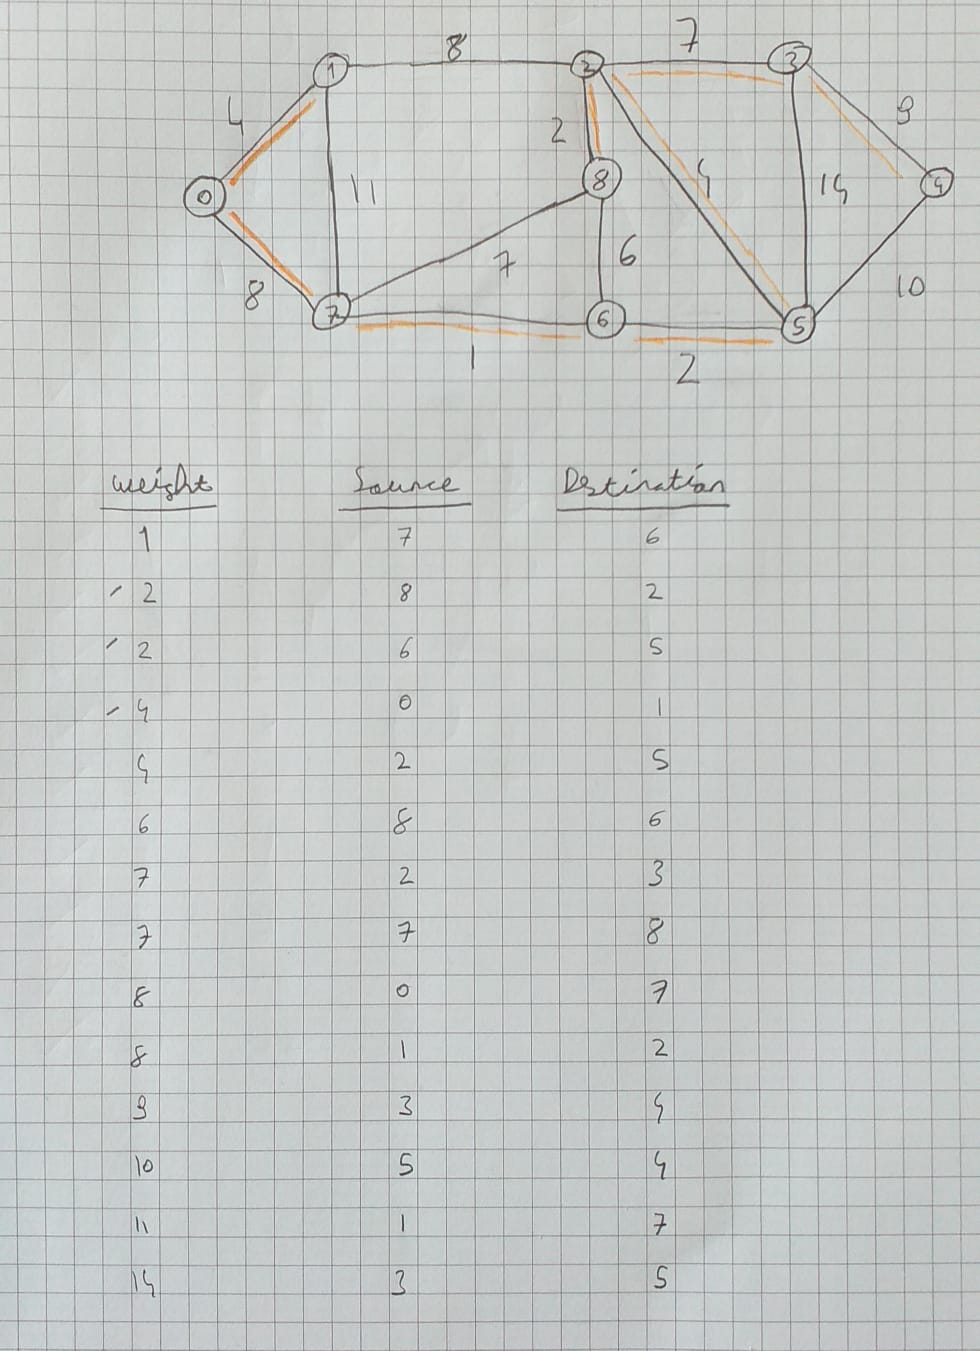 8 7
1 2 3
4 9
2
8 4 14 4
0 11
7 6
8 10
7 6 5
1 2
weight Source Destination
1 7 6
2 8 2
2 6 5
4 0 1
4 2 5
6 8 6
7 2 3
7 7 8
8 0 7
8 1 2
9 3 4
10 5 4
11 1 7
14 3 5